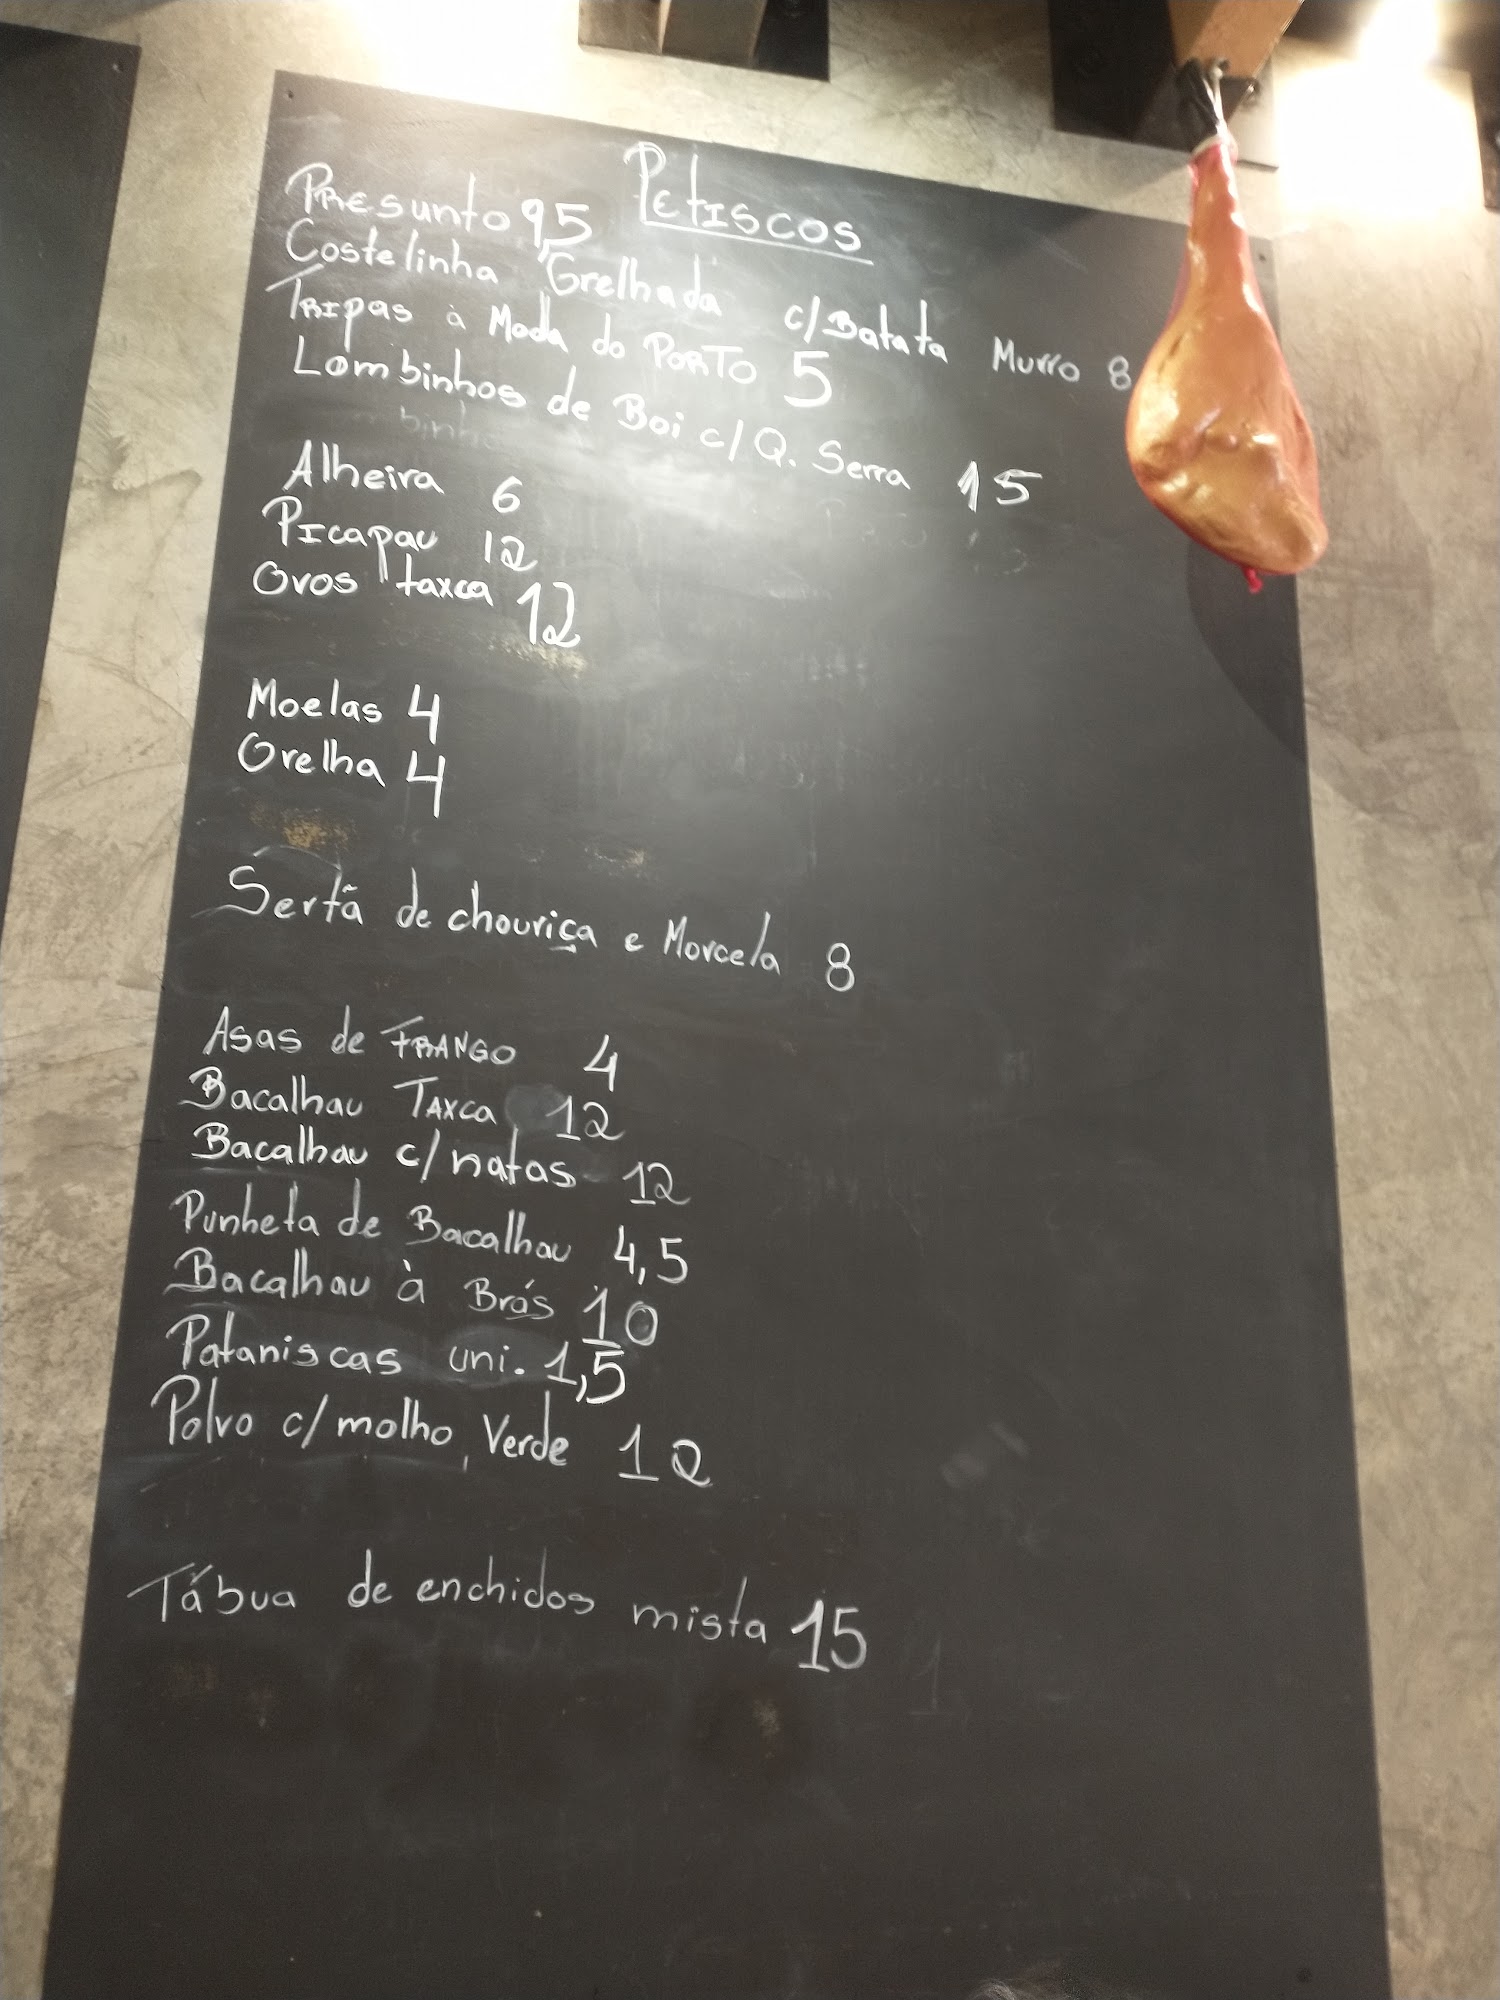 Petiscos
Presunto 9,5
Costelinha Grelhada c/Batata Murro 8
Tripas à Moda do Porto 5
Lombinhos de Boi c/Q. Serra 15
Alheira 6
Picapau 12
Ovos taxca 12
Moelas 4
Orelha 4
Sertã de chouriça e Morcela 8
Asas de FRANGO 4
Bacalhau Taxca 12
Bacalhau c/natas 12
Punheta de Bacalhau 4,5
Bacalhau à Brás 10
Pataniscas uni. 1,5
Polvo c/molho Verde 12
Tábua de enchidos mista 15